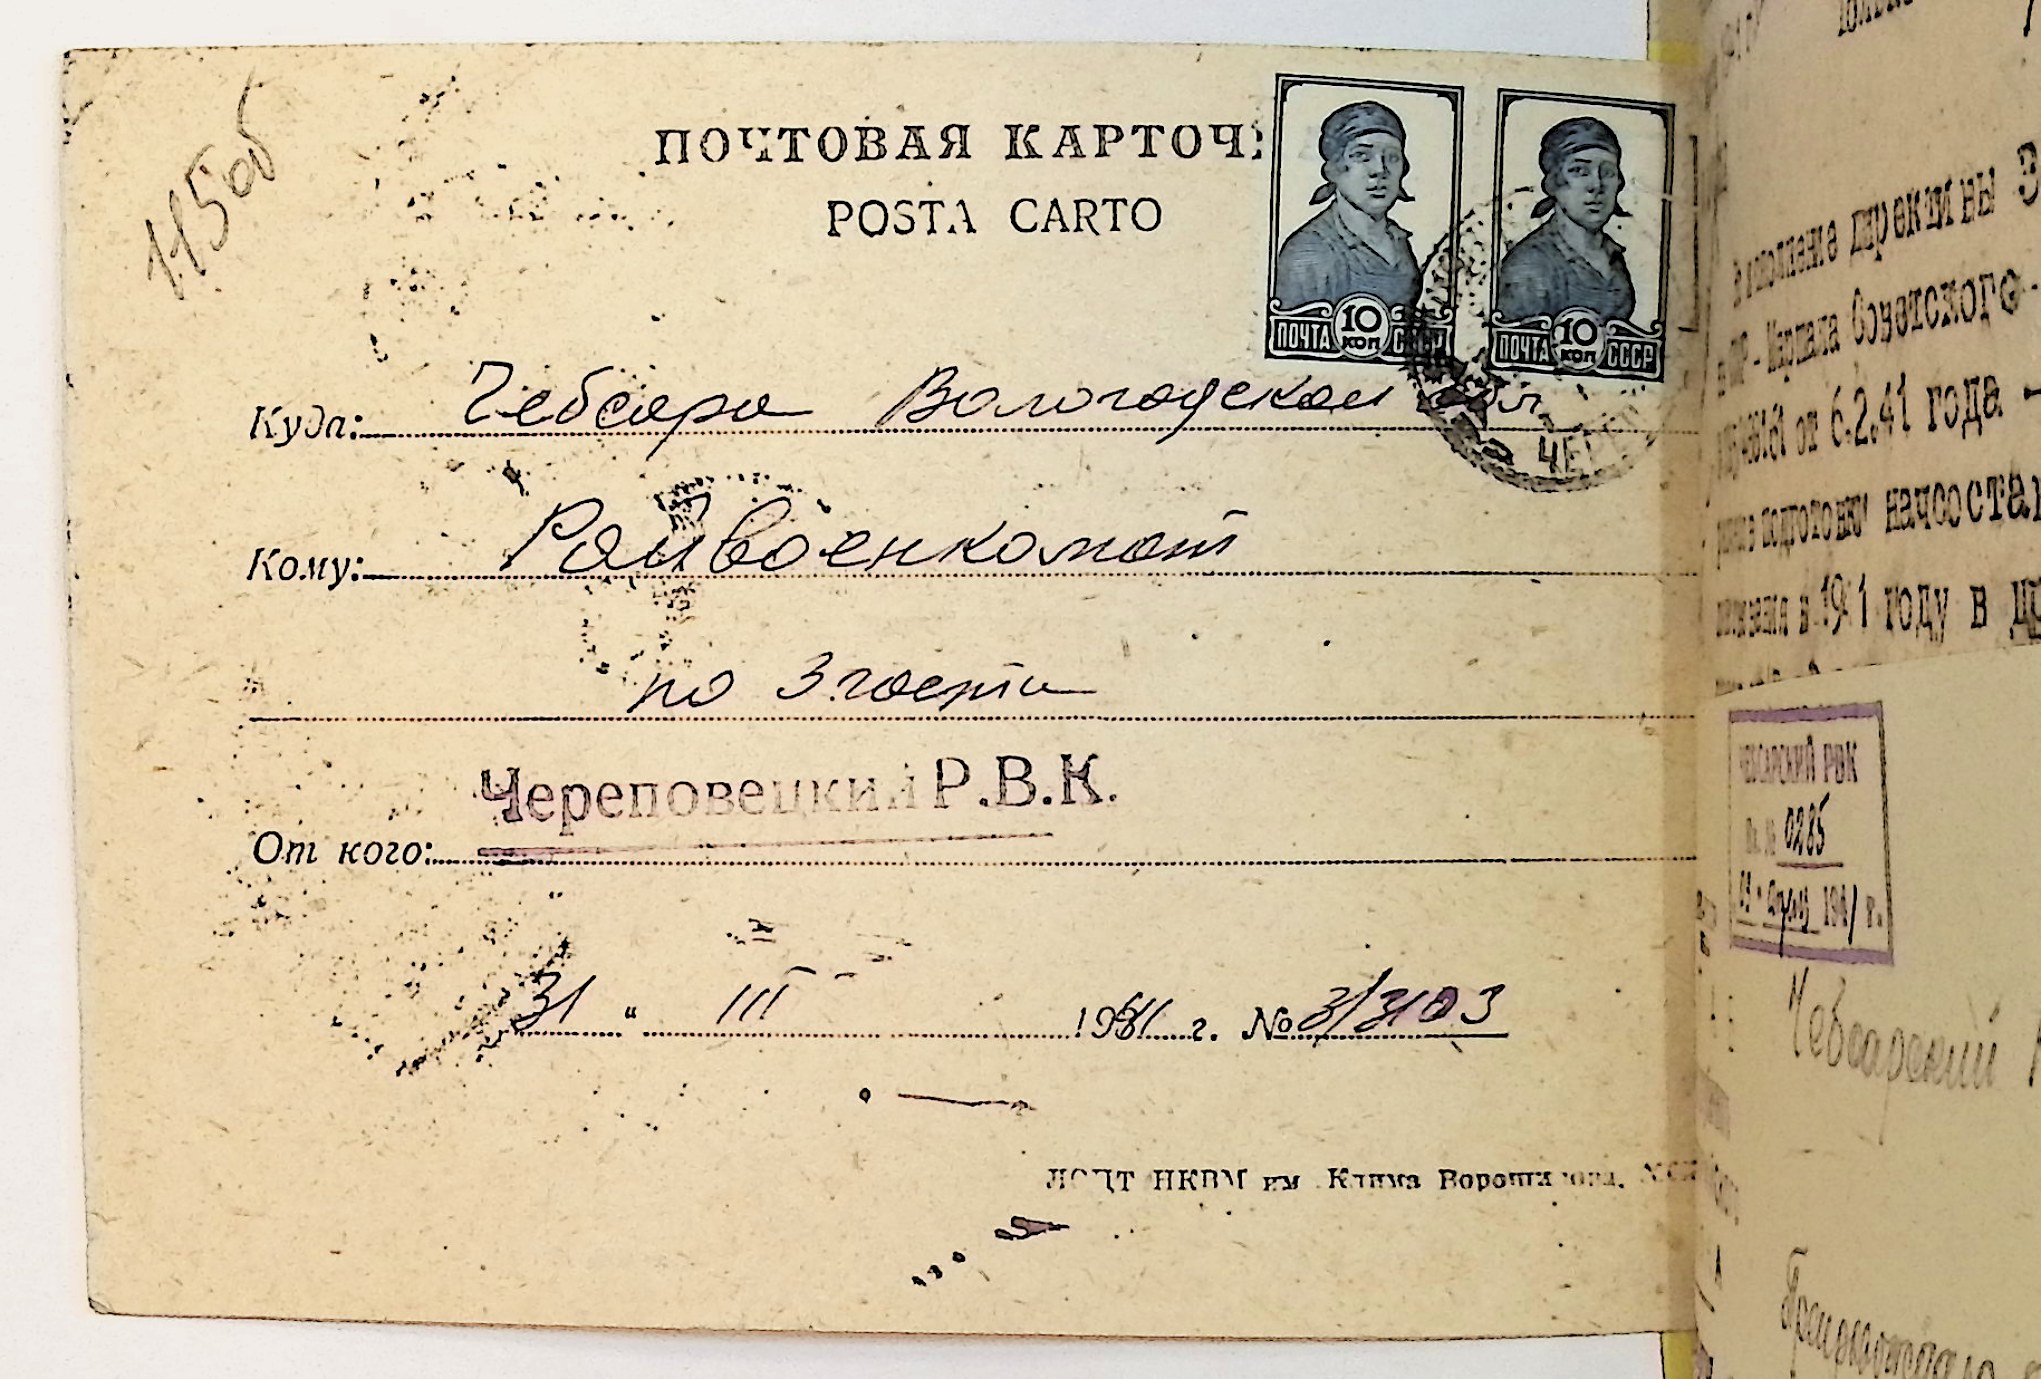 115об
ПОЧТОВАЯ КАРТОЧ
POSTA CARTO
ПОЧТА 10 КОП СССР
ПОЧТА 10 КОП СССР
Куда: Чебсара Вологодской обл
ЧЕРЕП
Кому: Райвоенкомат
по 3 части
Череповецкий Р.В.К.
От кого:
31 " III 1941 г. № 3/3103
НКВМ им Клима Ворошилова,
директивы
Маршала Советского
от 6.2.41 года -
подготовку начсостав
в 1941 году в
ЧЕБСАРСКИЙ РВК
Вх. № 0285
1941 г.
Чебсарский